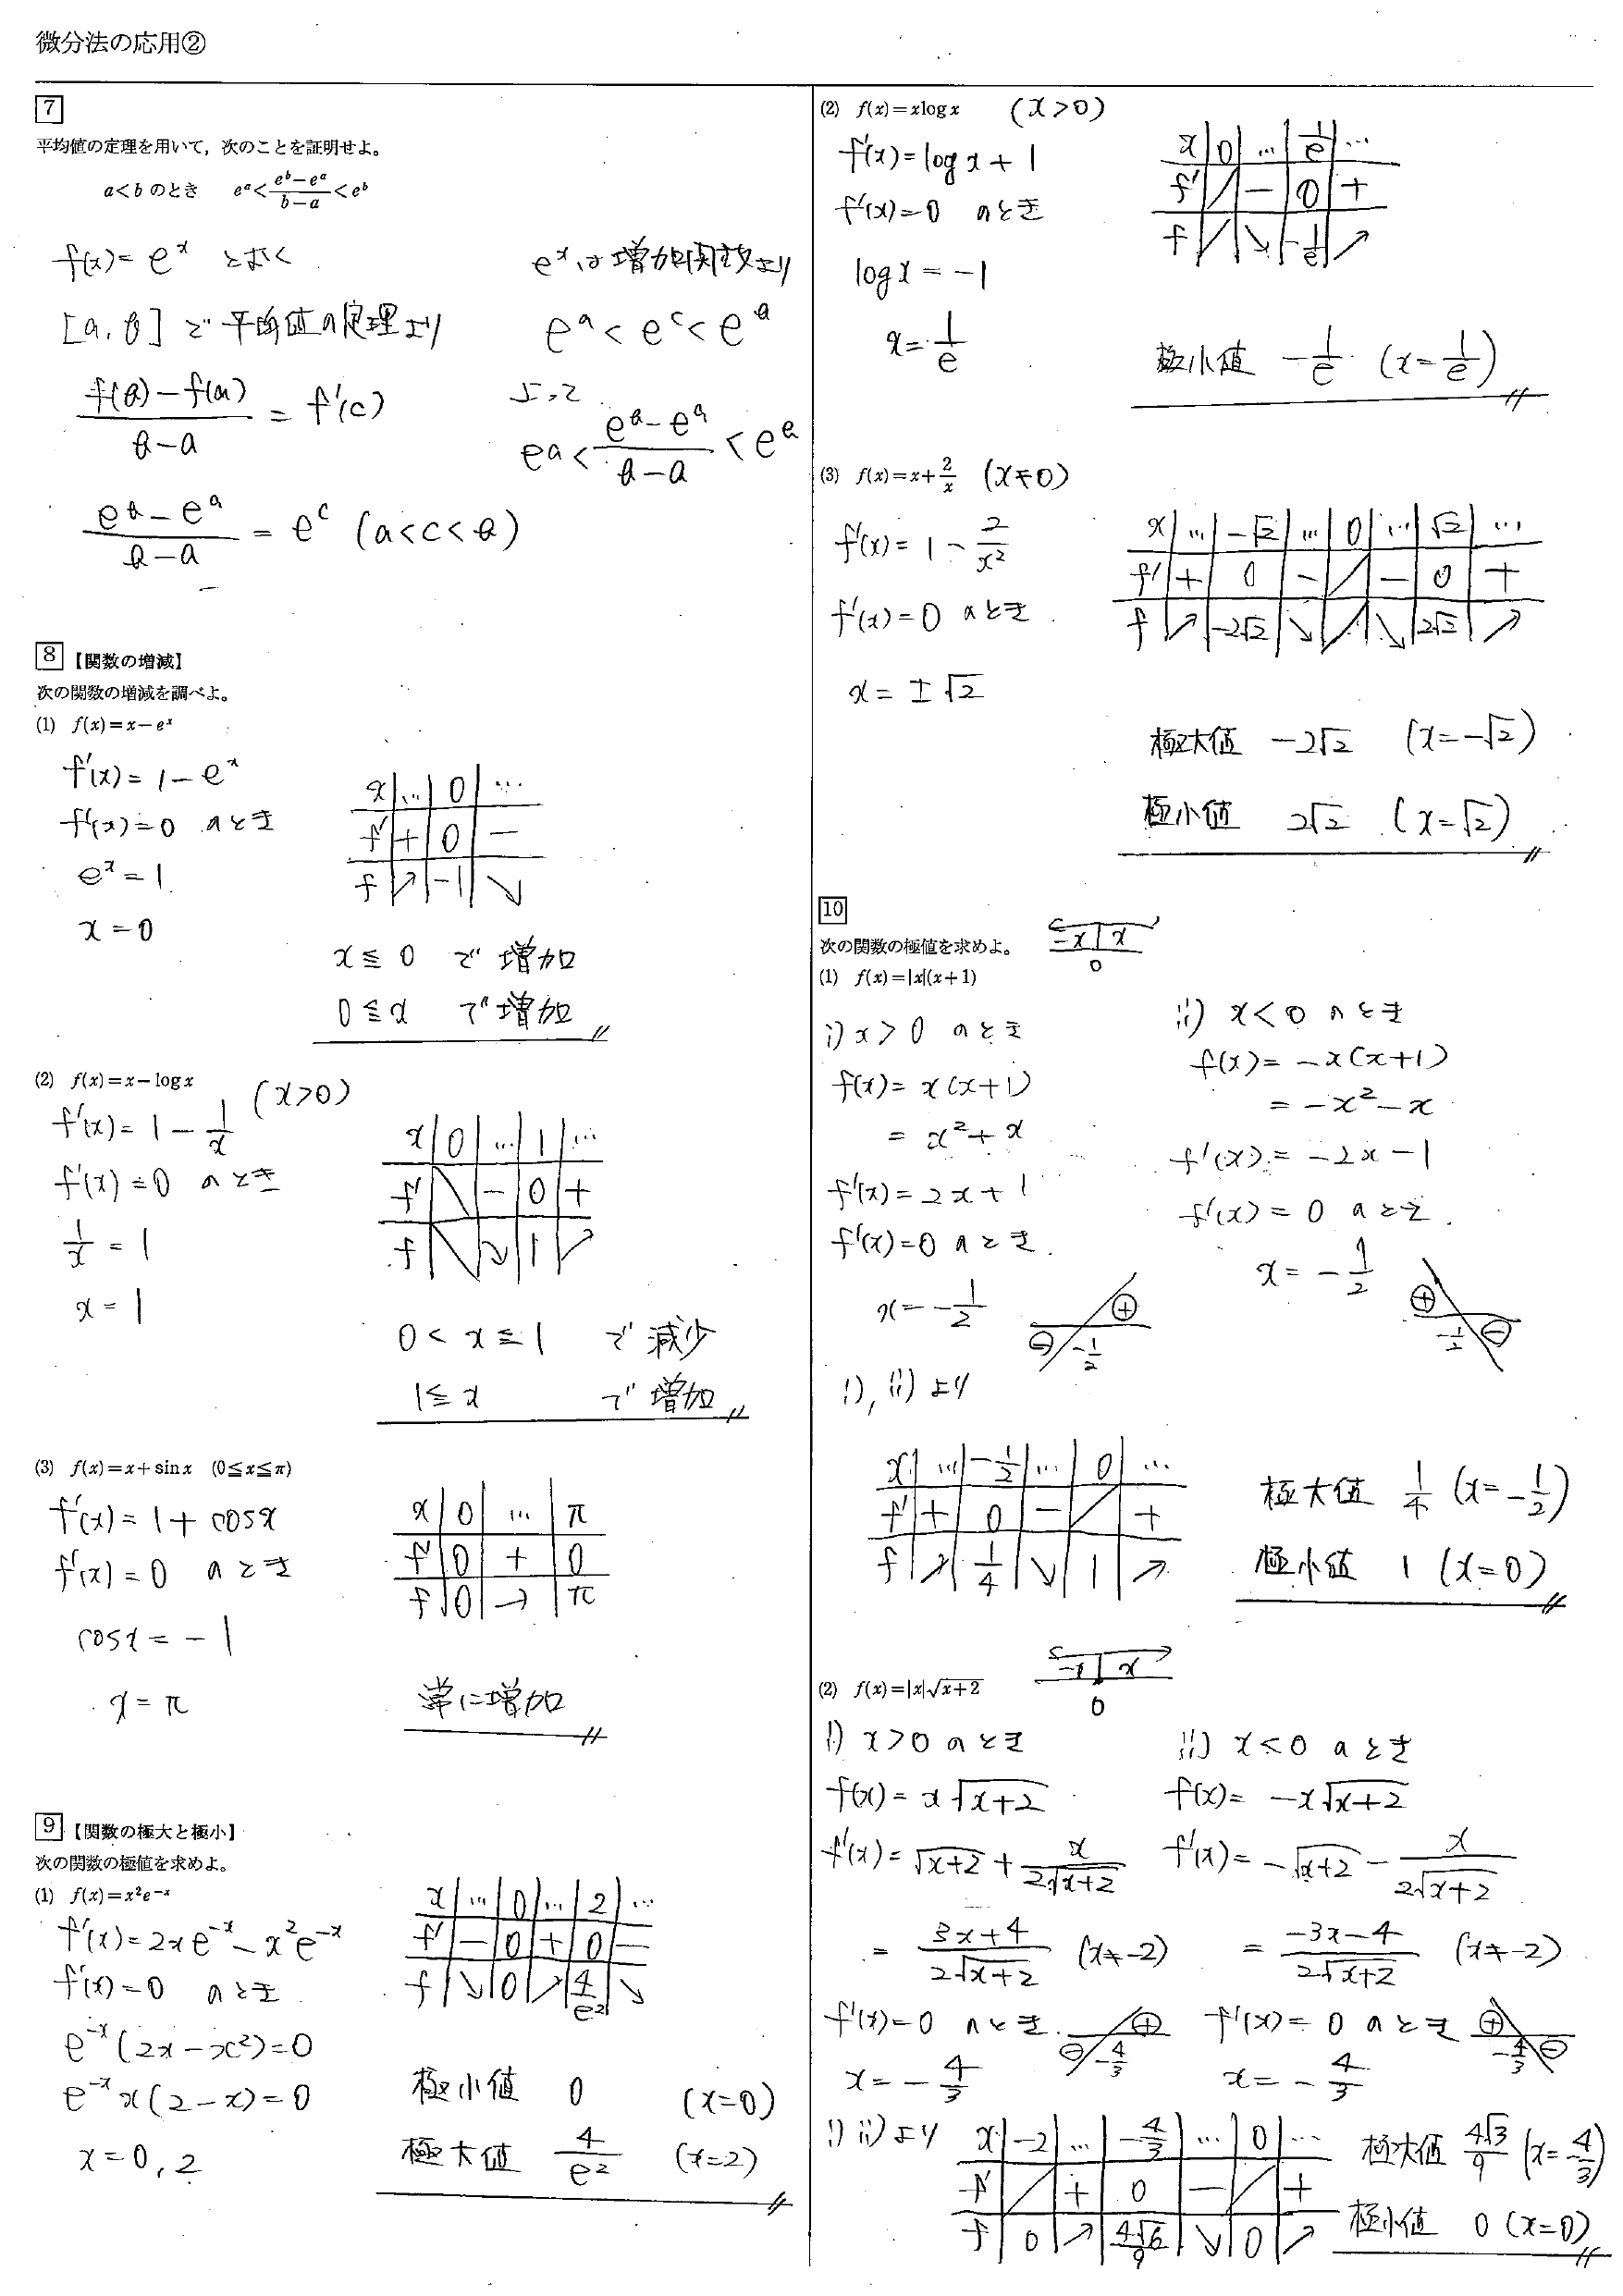 微分法の応用②
7
平均値の定理を用いて，次のことを証明せよ。
a<b のとき　e^a<(e^b−e^a)/(b−a)<e^b
f(x)=e^x とおく
[a, b] で平均値の定理より
(f(b)−f(a))/(b−a) = f'(c)
(e^b−e^a)/(b−a) = e^c (a<c<b)
e^x は増加関数より
e^a < e^c < e^b
よって
e^a < (e^b−e^a)/(b−a) < e^b
8【関数の増減】
次の関数の増減を調べよ。
(1) f(x)=x−e^x
f'(x)=1−e^x
f'(x)=0 のとき
e^x=1
x=0
x | … | 0 | …
f' | + | 0 | −
f | ↗ | −1 | ↘
x≦0 で 増加
0≦x で 増加
(2) f(x)=x−log x (x>0)
f'(x)=1−1/x
f'(x)=0 のとき
1/x=1
x=1
x | 0 | … | 1 | …
f' | ＼ | − | 0 | +
f | ＼ | ↘ | 1 | ↗
0<x≦1 で 減少
1≦x で 増加
(3) f(x)=x+sin x (0≦x≦π)
f'(x)=1+cosx
f'(x)=0 のとき
cosx=−1
x=π
x | 0 | … | π
f' | 0 | + | 0
f | 0 | → | π
常に増加
9【関数の極大と極小】
次の関数の極値を求めよ。
(1) f(x)=x²e^−x
f'(x)=2xe^−x−x²e^−x
f'(x)=0 のとき
e^−x(2x−x²)=0
e^−x x(2−x)=0
x=0, 2
x | … | 0 | … | 2 | …
f' | − | 0 | + | 0 | −
f | ↘ | 0 | ↗ | 4/e² | ↘
極小値 0 (x=0)
極大値 4/e² (x=2)
(2) f(x)=x log x (x>0)
f'(x)=log x+1
f'(x)=0 のとき
log x=−1
x=1/e
x | 0 | … | 1/e | …
f' | ／ | − | 0 | +
f | ／ | ↘ | −1/e | ↗
極小値 −1/e (x=1/e)
(3) f(x)=x+2/x (x≠0)
f'(x)=1−2/x²
f'(x)=0 のとき
x=±√2
x | … | −√2 | … | 0 | … | √2 | …
f' | + | 0 | − | ／ | − | 0 | +
f | ↗ | −2√2 | ↘ | ／ | ↘ | 2√2 | ↗
極大値 −2√2 (x=−√2)
極小値 2√2 (x=√2)
10
次の関数の極値を求めよ。
−x | x
0
(1) f(x)=|x|(x+1)
i) x>0 のとき
f(x)=x(x+1)
=x²+x
f'(x)=2x+1
f'(x)=0 のとき
x=−1/2
⊖ −1/2 ⊕
ii) x<0 のとき
f(x)=−x(x+1)
=−x²−x
f'(x)=−2x−1
f'(x)=0 のとき
x=−1/2
⊕ −1/2 ⊖
i), ii) より
x | … | −1/2 | … | 0 | …
f' | + | 0 | − | ／ | +
f | ↗ | 1/4 | ↘ | 1 | ↗
極大値 1/4 (x=−1/2)
極小値 1 (x=0)
−x | x
0
(2) f(x)=|x|√(x+2)
i) x>0 のとき
f(x)=x√(x+2)
f'(x)=√(x+2)+x/(2√(x+2))
=(3x+4)/(2√(x+2)) (x≠−2)
f'(x)=0 のとき
x=−4/3
⊖ −4/3 ⊕
ii) x<0 のとき
f(x)=−x√(x+2)
f'(x)=−√(x+2)−x/(2√(x+2))
=(−3x−4)/(2√(x+2)) (x≠−2)
f'(x)=0 のとき
x=−4/3
⊕ −4/3 ⊖
i) ii) より
x | −2 | … | −4/3 | … | 0 | …
f' | ／ | + | 0 | − | ／ | +
f | 0 | ↗ | 4√6/9 | ↘ | 0 | ↗
極大値 4√3/9 (x=−4/3)
極小値 0 (x=0)